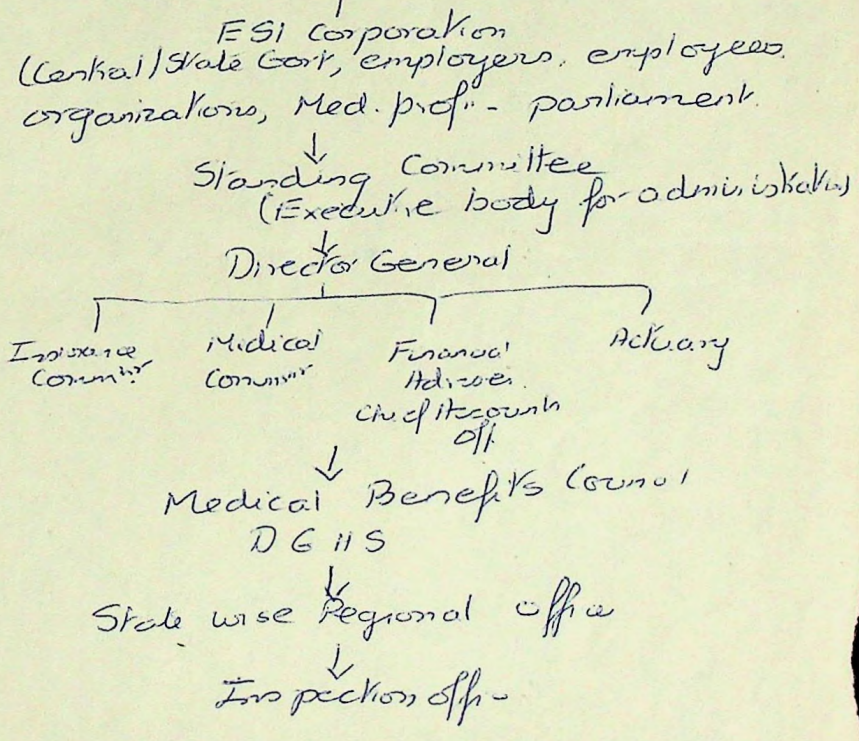 ESI Corporation
(Central/State Govt, employers, employees
organizations, Med. profn - parliament
Standing Committee
(Executive body for administration)
Director General
Insurance Medical Financial Actuary
Commnr Commnr Adviser
Chief Accounts
Off
Medical Benefits Council
DGHS
State wise Regional office
Inspection off-